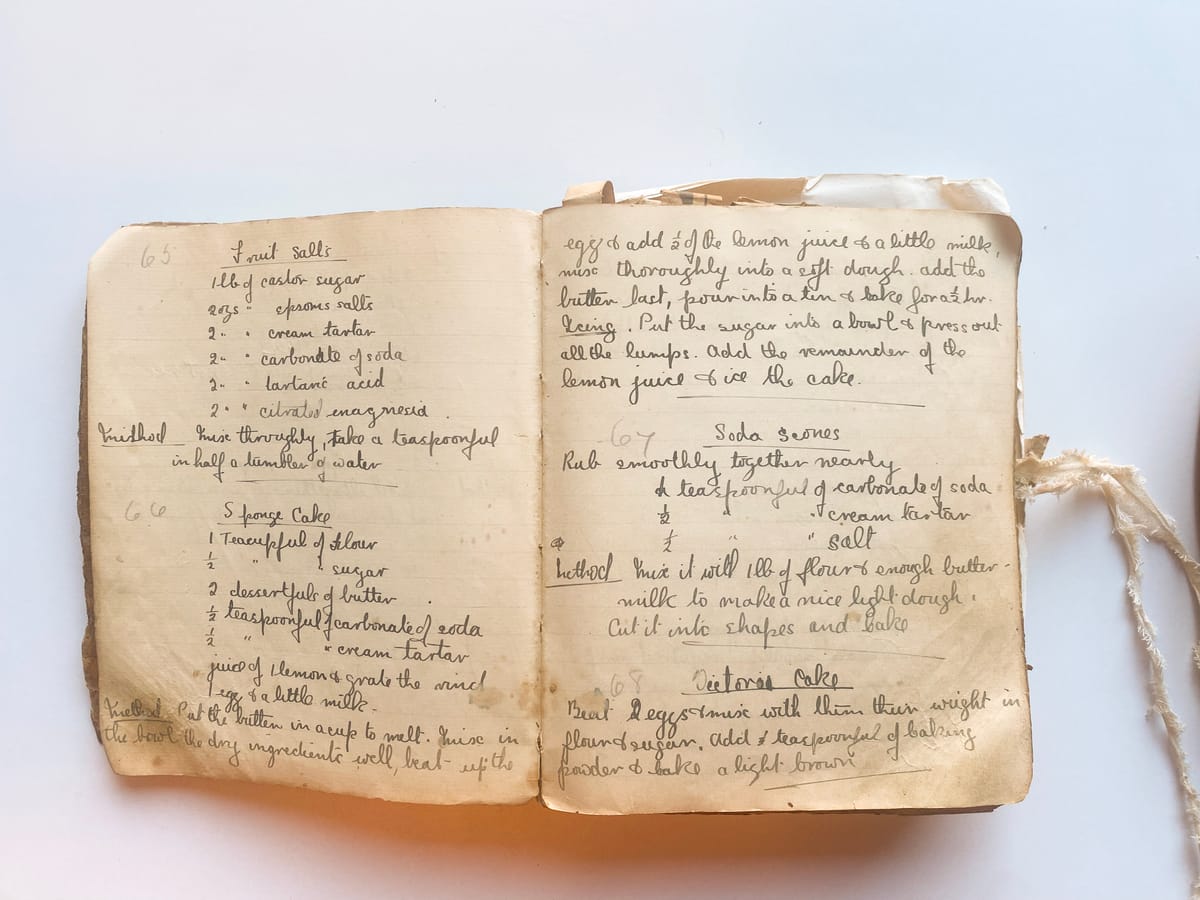 65
Fruit Salts
1 lb of castor sugar
2ozs " epsoms salts
2 " " cream tartar
2 " " carbonate of soda
2 " " tartaric acid
2 " " citrated magnesia.
Method Mix throughly, Take a teaspoonful
in half a tumbler of water
66
Sponge Cake
1 Teacupful of flour
½ " " sugar
2 dessertfuls of butter
½ teaspoonful of carbonate of soda
½ " " cream tartar
juice of 1 lemon & grate the rind
1 egg & a little milk.
Method Put the butter in a cup to melt. Mix in
the bowl the dry ingredients well, beat up the
egg & add ½ of the lemon juice & a little milk,
mix thoroughly into a soft dough. add the
butter last, pour into a tin & bake for a ½ hr.
Icing. Put the sugar into a bowl & press out
all the lumps. Add the remainder of the
lemon juice & ice the cake.
67
Soda Scones
Rub smoothly together nearly
teaspoonful of carbonate of soda
½ " " cream tartar
½ " " salt
Method Mix it with 1lb of flour & enough butter-
milk to make a nice light dough.
Cut it into shapes and bake
68
Victoria Cake
Beat 2 eggs & mix with them their wright in
flour & sugar. Add teaspoonful of baking
powder & bake a light brown